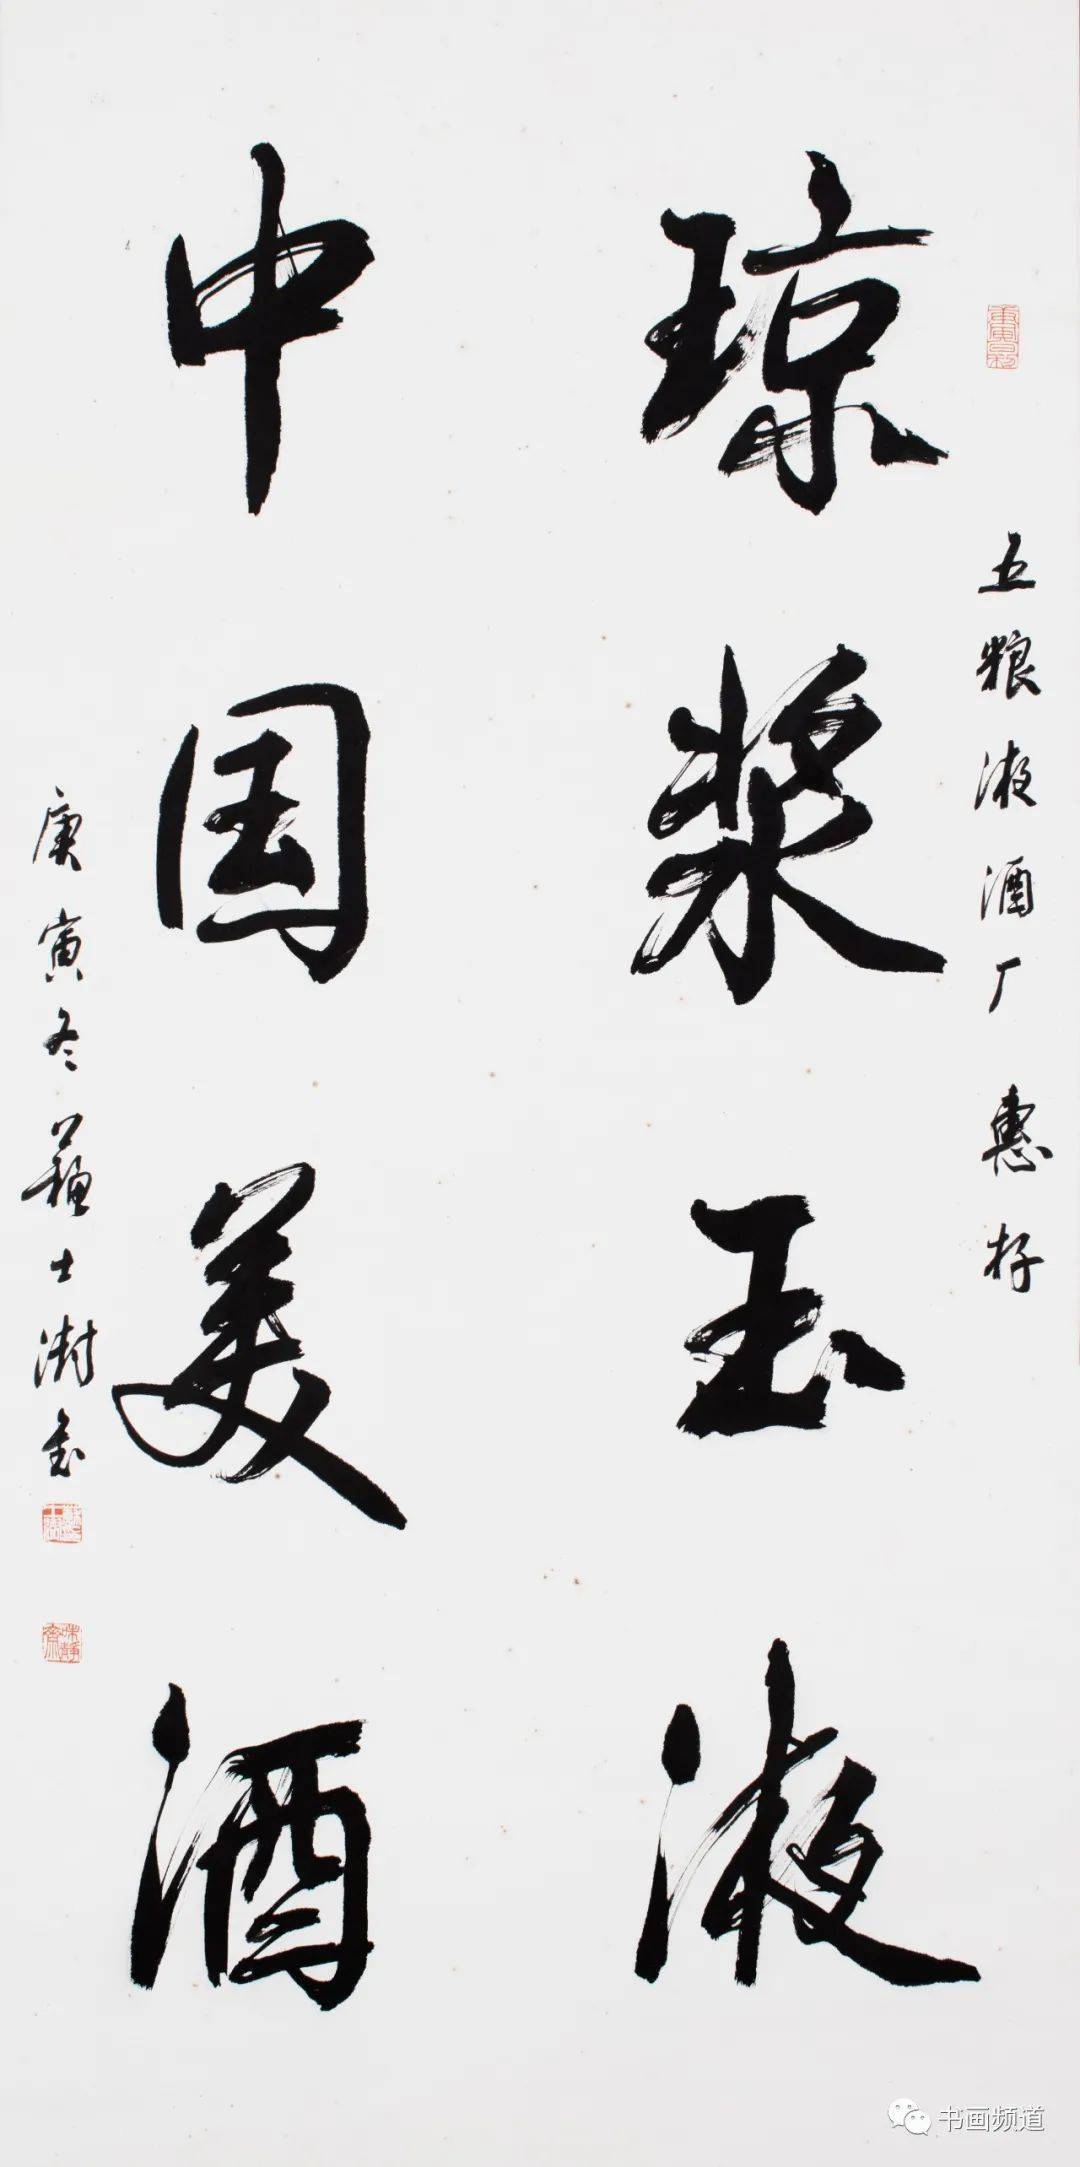 五粮液酒厂 惠存
琼浆玉液
中国美酒
庚寅冬蘇士澍
书画频道